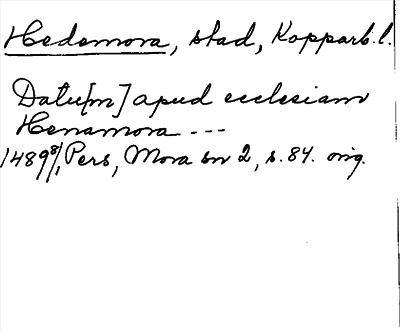 Hedemora, stad, Kopparb. l.
Datu[m] apud ecclesiam
Henamora ---
1489 8/1, Pers, Mora sn 2, s. 84. orig.